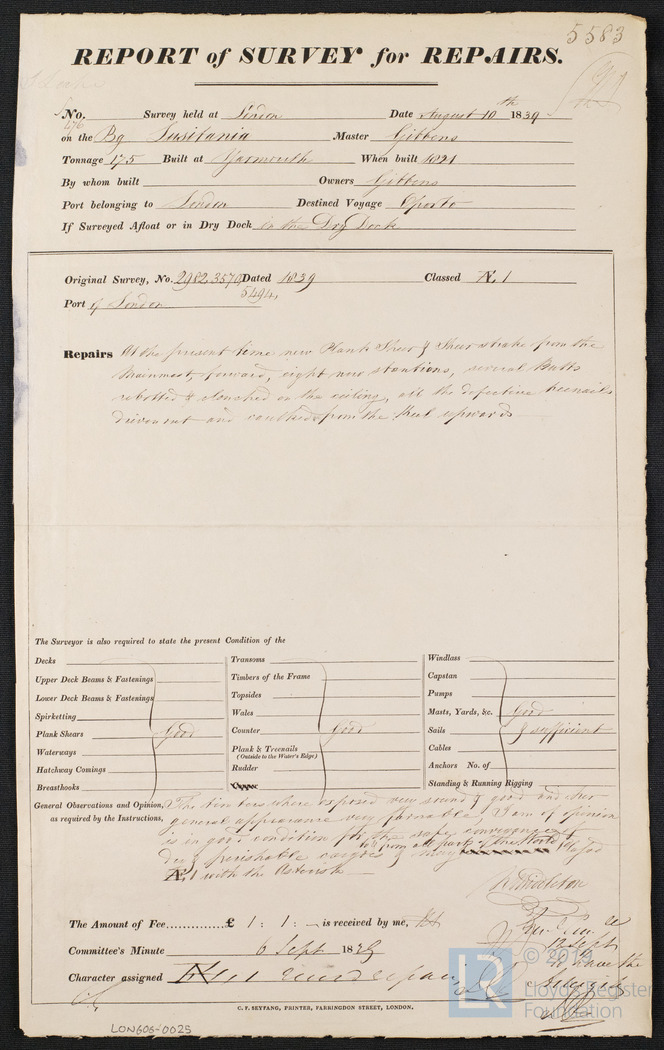 5583
REPORT of SURVEY for REPAIRS.
No. 476 Survey held at London Date August 10th 1839
on the Bg Lusitania Master Gibbens
Tonnage 175 Built at Yarmouth When built 1821
By whom built Owners Gibbens
Port belonging to London Destined Voyage Oporto
If Surveyed Afloat or in Dry Dock in the Dry Dock
Original Survey, No. 2982.3570 Dated 1839 Classed Æ 1
5494
Port of London
Repairs At the present time new Plank Sheer & Sheerstrake from the
Mainmast, forward, eight new stantions, several Butts
rebolted & clenched on the ceiling, all the defective treenails
driven out and caulked from the Keel upwards
The Surveyor is also required to state the present Condition of the
Decks
Upper Deck Beams & Fastenings
Lower Deck Beams & Fastenings
Spirketting
Plank Shears Good
Waterways
Hatchway Comings
Breasthooks
Transoms
Timbers of the Frame
Topsides
Wales
Counter Good
Plank & Treenails
(Outside to the Water's Edge)
Rudder
Windlass
Capstan
Pumps
Masts, Yards, &c. Good
Sails & sufficient
Cables
Anchors No. of
Standing & Running Rigging
General Observations and Opinion, The timbers where exposed very sound & good and her
as required by the Instructions, general appearance very favorable. I am of opinion
is in good condition for the safe conveyance of
dry & perishable cargoes to & from all parts of the World & may Classed
Æ 1 with the Asterisk
The Amount of Fee £ 1 : 1 : - is received by me,
Committee's Minute 6 Sept 1839
12 Sept
to have the
Character assigned
© 2019
LR
Lloyd's Register
Foundation
C. F. SEYFANG, PRINTER, FARRINGDON STREET, LONDON.
LON606-0025